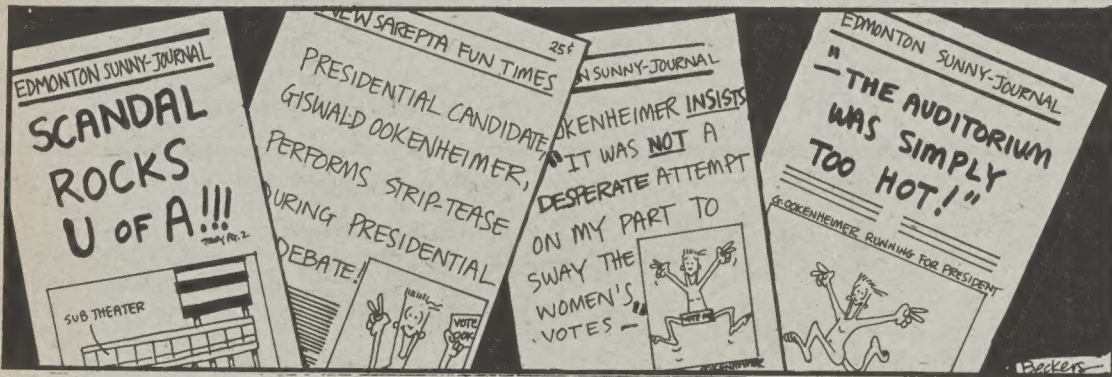 EDMONTON SUNNY-JOURNAL
SCANDAL
ROCKS
U OF A!!!
SUB THEATER
NEW SAREPTA FUN TIMES
25¢
PRESIDENTIAL CANDIDATE,
GISWALD OOKENHEIMER,
PERFORMS STRIP-TEASE
DURING PRESIDENTIAL
DEBATE!
VOTE
OOK
N SUNNY-JOURNAL
OOKENHEIMER INSISTS
"IT WAS NOT A
DESPERATE ATTEMPT
ON MY PART TO
SWAY THE
WOMEN'S
VOTES—"
VOTE ME
OOKENHEIMER
EDMONTON SUNNY-JOURNAL
"THE AUDITORIUM
WAS SIMPLY
TOO HOT!"
G. OOKENHEIMER RUNNING FOR PRESIDENT
Beckers